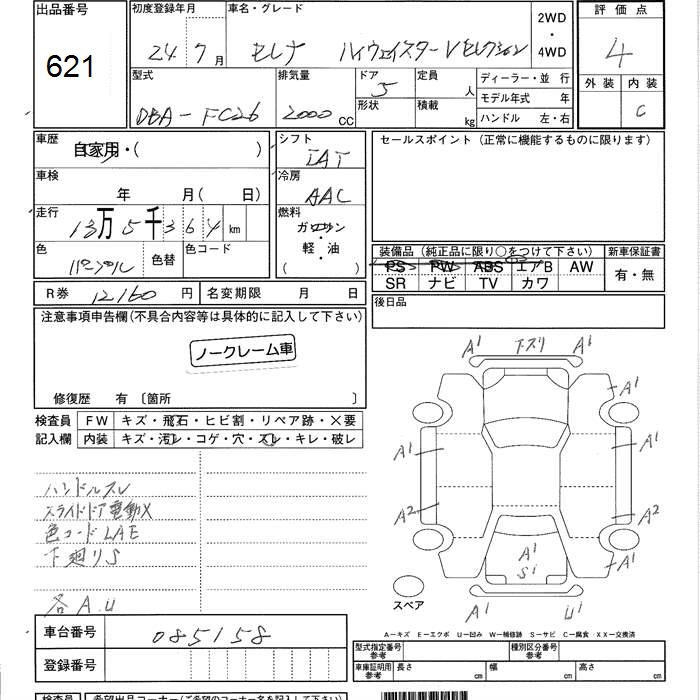 出品番号
621
初度登録年月
24年7月
車名・グレード
セレナ ハイウェイスターVセレクション
2WD
・
4WD
評価点
4
外装 内装
C
型式
DBA-FC26
排気量
2000 CC
ドア
5
形状
定員
人
積載
kg
ディーラー・並行
モデル年式 年
ハンドル 左・右
車歴
自家用・( )
車検
年 月(日)
走行
13万5千364 km
色
パープル
色替
色コード
シフト
IAT
冷房
AAC
燃料
ガソリン
軽・油
( )
セールスポイント(正常に機能するものに限ります)
装備品(純正品に限り○をつけて下さい)
PS PW ABS エアB AW
SR ナビ TV カワ
新車保証書
有・無
R券 12160 円
名変期限 月 日
後日品
注意事項申告欄(不具合内容等は具体的に記入して下さい)
ノークレーム車
修復歴 有 〔箇所 〕
検査員
記入欄
FW キズ・飛石・ヒビ割・リペア跡・×要
内装 キズ・汚レ・コゲ・穴・スレ・キレ・破レ
ハンドルスレ
スライドドア電動X
色コードLAE
下廻りS
各A.U
A1 下スリ A1
A1
A1 A1
A2 A2
A1
S1
A1
A1 U1
スペア
A-キズ E-エクボ U-凹み W-補修跡 S-サビ C-腐食 XX-交換済
車台番号
085158
登録番号
型式指定番号
参考
種別区分番号
参考
車庫証明用
参考
長さ cm
幅 cm
高さ cm
検査員
希望出品コーナー(ご希望のコーナー名を記入下さい)